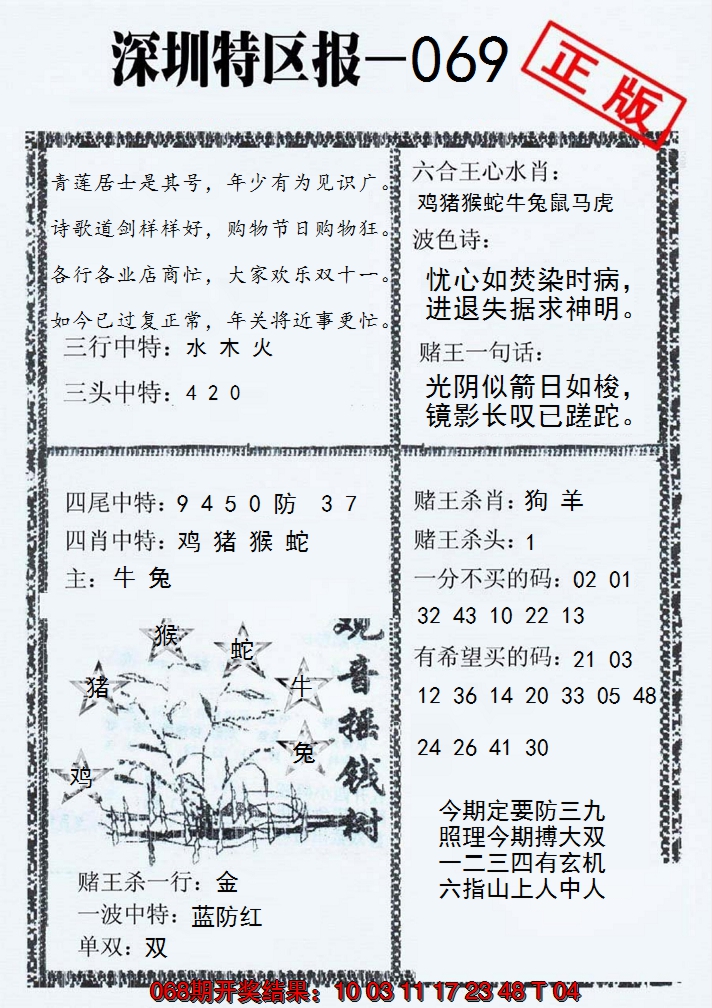 深圳特区报—069
正版
青莲居士是其号，年少有为见识广。
诗歌道剑样样好，购物节日购物狂。
各行各业店商忙，大家欢乐双十一。
如今已过复正常，年关将近事更忙。
三行中特：水 木 火
三头中特：4 2 0
六合王心水肖：
鸡猪猴蛇牛兔鼠马虎
波色诗：
忧心如焚染时病，
进退失据求神明。
赌王一句话：
光阴似箭日如梭，
镜影长叹已蹉跎。
四尾中特：9 4 5 0 防 3 7
四肖中特：鸡 猪 猴 蛇
主：牛 兔
猴
蛇
猪
牛
鸡
兔
观音摇钱树
赌王杀一行：金
一波中特：蓝防红
单双：双
赌王杀肖：狗 羊
赌王杀头：1
一分不买的码：02 01
32 43 10 22 13
有希望买的码：21 03
12 36 14 20 33 05 48
24 26 41 30
今期定要防三九
照理今期搏大双
一二三四有玄机
六指山上人中人
068期开奖结果：10 03 11 17 23 48 T 04